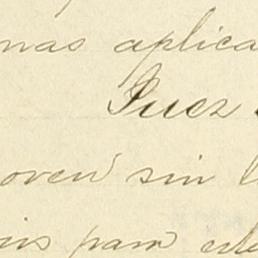 nas aplica
Juez
oven sin l
para